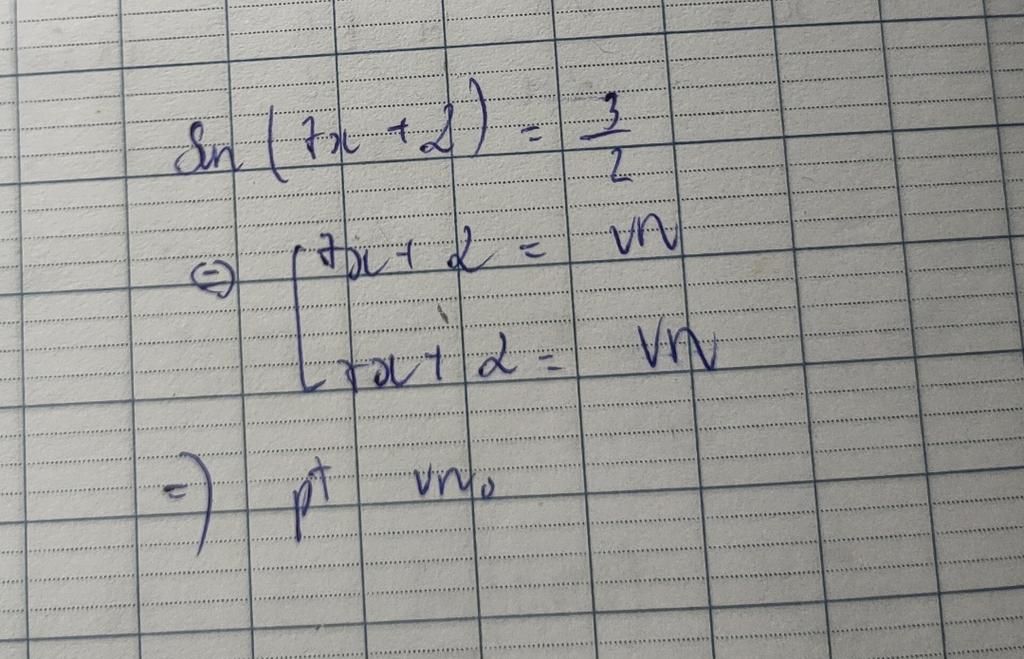 Sin (7x + 2) = 3/2
⇔ [ 7x + 2 = vn
7x + 2 = vn
=> pt vno